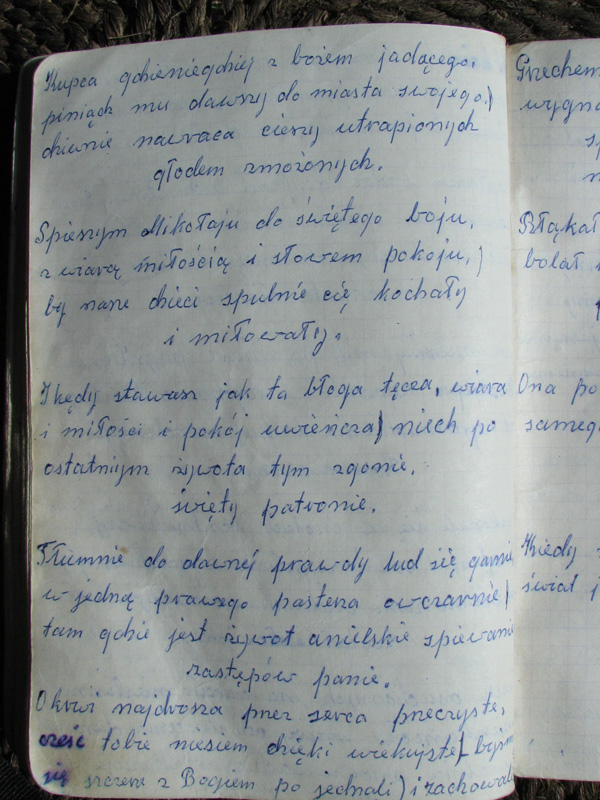 Kupca gdzieniegdziej z bożem jadącego,
piniądz mu dawszy do miasta swojego,)
dziwnie nawraca cieszy utrapionych
głodem zmożonych.
Spieszym Mikołaju do świętego boju,
z wiarą miłością i słowem pokoju,)
by nasze dzieci spulnie cię kochały
i miłowały.
I kędy stawasz jak ta błoga tęcza, wiara
i miłości i pokój uwieńcza) niech po
ostatnim żywota tym zgonie,
święty patronie.
Tłumnie do dawnej prawdy lud się garnie
w jedną prawego pasteza owczarnie)
tam gdzie jest żywot anielskie spiewanie
zastępów panie.
O krwi najdrosza przez serca przeczyste,
cześć tobie niesiem dzięki wiekuyste)
się szczeze z Bogiem po jednali) i zachowali
Grzechem
wygna
Płąkał
bolał
Ona po
samego
Kiedy
świat